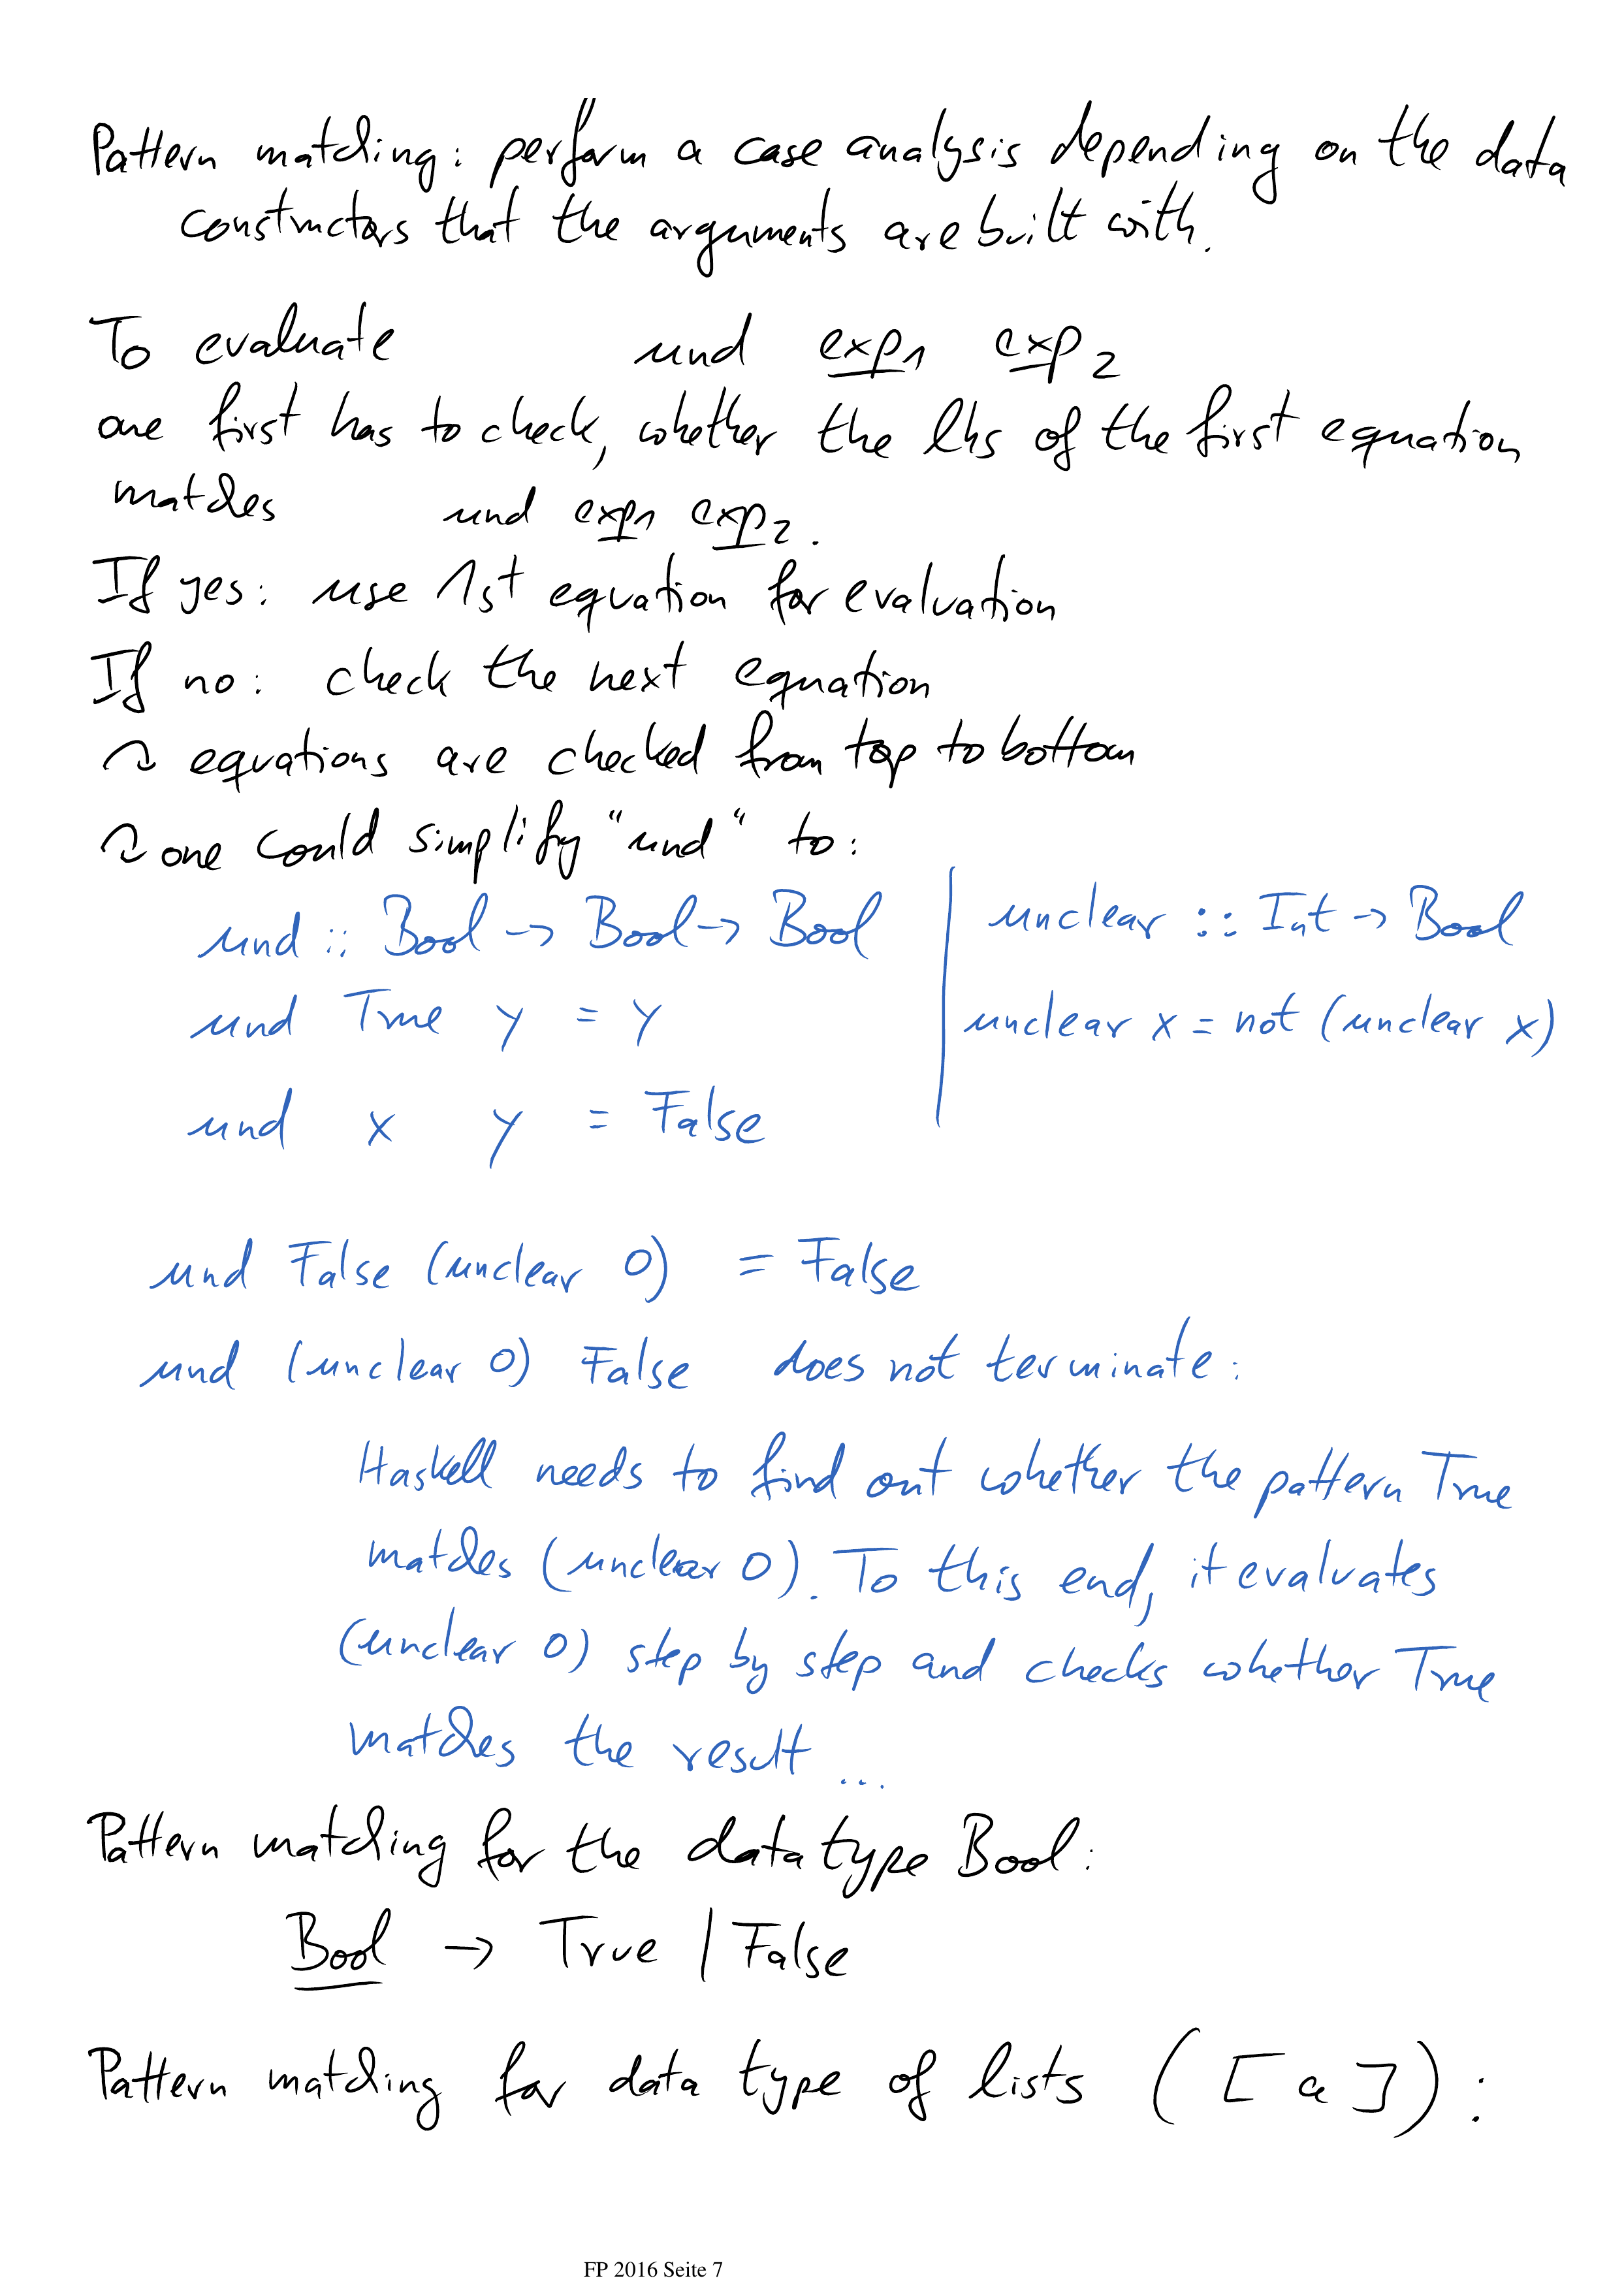 Pattern matching: perform a case analysis depending on the data
constructors that the arguments are built with.
To evaluate und exp1 exp2
one first has to check, whether the lhs of the first equation
matches und exp1 exp2.
If yes: use 1st equation for evaluation
If no: check the next equation
↷ equations are checked from top to bottom
↷ one could simplify "und" to:
und :: Bool -> Bool -> Bool | unclear :: Int -> Bool
und True y = y | unclear x = not (unclear x)
und x y = False
und False (unclear 0) = False
und (unclear 0) False does not terminate:
Haskell needs to find out whether the pattern True
matches (unclear 0). To this end, it evaluates
(unclear 0) step by step and checks whether True
matches the result ...
Pattern matching for the data type Bool:
Bool → True | False
Pattern matching for data type of lists ([a]):
FP 2016 Seite 7